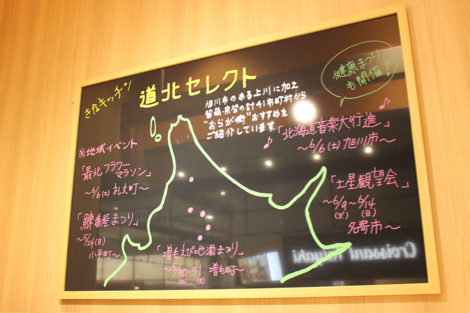 きた キッチン
道北セレクト
旭川市のある上川に加え
留萌・宗谷の計41市町村から
"おらが街"おすすめを
ご紹介しています
健康まつり
も開催!
※地域イベント
「最北フラワー
マラソン」
〜6/6(土)礼文町〜
「鰊番屋まつり」
〜5/24(日)
小平町〜
「増毛えび地酒まつり」
〜5/30・31 増毛町〜
(土) (日)
「北海道音楽大行進」
〜6/6(土)旭川市〜
「土星観望会」
〜6/9〜6/14
(火) (日)
名寄市〜
Croissant Taiyaki